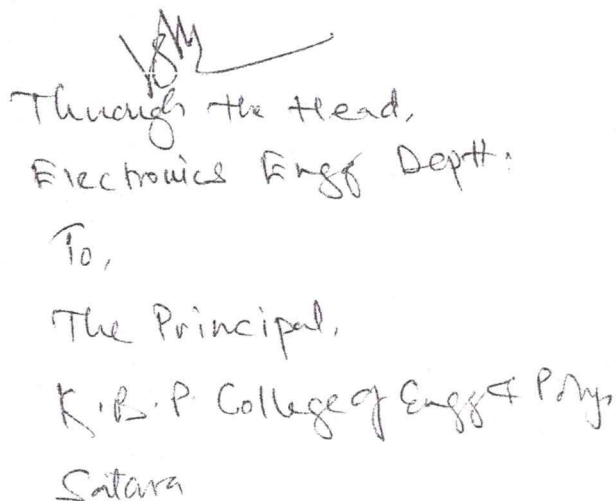 Through the Head,
Electronics Engg Deptt.
To,
The Principal,
K.B.P. College of Engg & Poly,
Satara